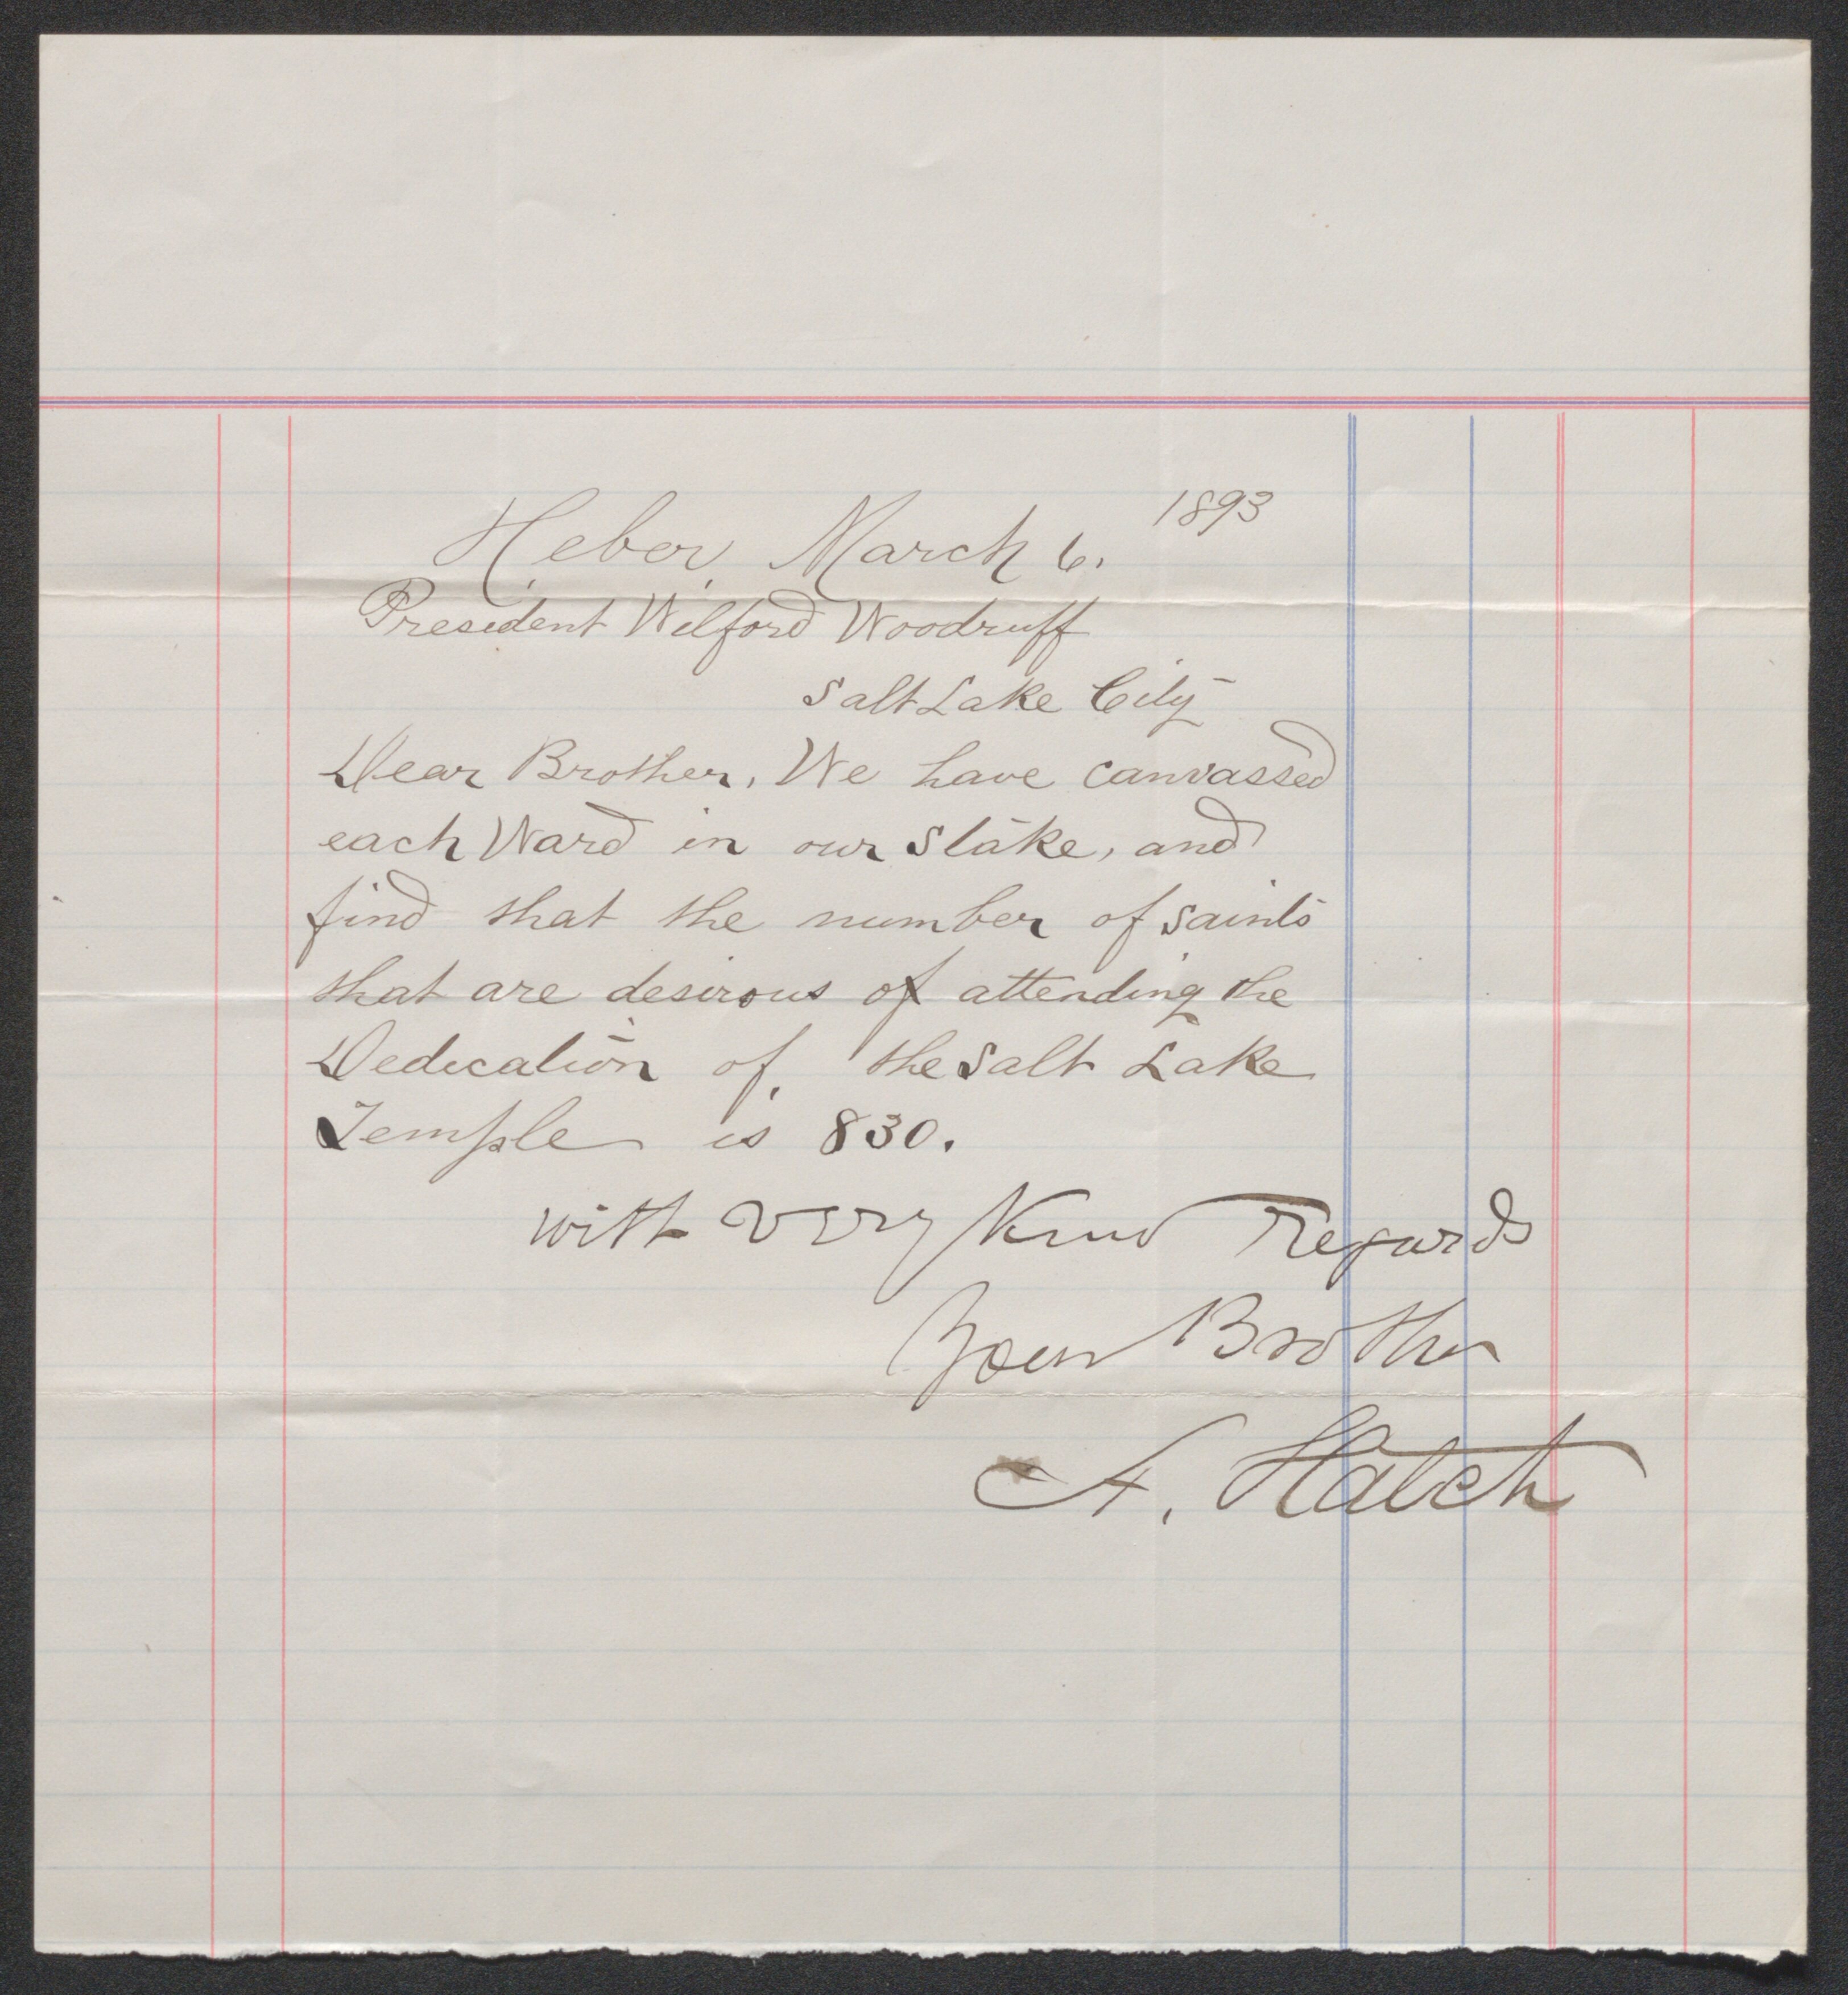 Heber, March 6. 1893
President Wilford Woodruff
Salt Lake City
Dear Brother, We have canvassed
each Ward in our Stake, and
find that the number of Saints
that are desirous of attending the
Dedication of the Salt Lake
Temple is 830.
with very Kind Regards
Your Brother
A. Hatch